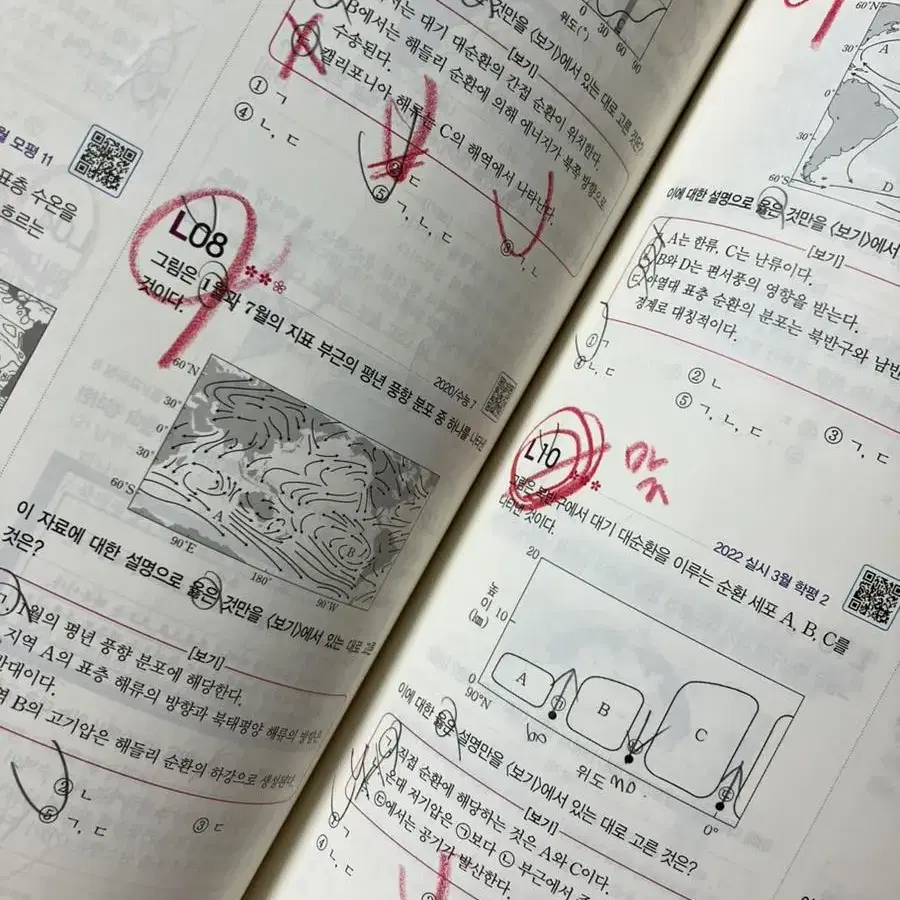 월 모평 11
표층 수온을
흐르는
위도(°) 0 30 60 90
서는 대기 대순환의 간접 순환이 위치한다.
B에서는 해들리 순환에 의해 에너지가 북쪽 방향으로
수송된다.
ㄷ 캘리포니아 해류는 C의 해역에서 나타난다.
것만을 〈보기〉에서 있는 대로 고른 것은?
[보기]
① ㄱ
④ ㄴ, ㄷ
⑤ ㄱ, ㄴ, ㄷ
L08
2020/수능 7
그림은 1월과 7월의 지표 부근의 평년 풍향 분포 중 하나를 나타낸
것이다.
60°N
30°
0°
30°
60°S
90°E
180°
90°W
A
B
이 자료에 대한 설명으로 옳은 것만을 〈보기〉에서 있는 대로 고른
것은?
[보기]
ㄱ. 1월의 평년 풍향 분포에 해당한다.
지역 A의 표층 해류의 방향과 북태평양 해류의 방향은
반대이다.
역 B의 고기압은 해들리 순환의 하강으로 생성된다.
② ㄴ
③ ㄷ
⑤ ㄱ, ㄷ
60°N
30°
0°
30°
60°S
A
D
이에 대한 설명으로 옳은 것만을 〈보기〉에서
[보기]
ㄱ. A는 한류, C는 난류이다.
ㄴ. B와 D는 편서풍의 영향을 받는다.
ㄷ. 아열대 표층 순환의 분포는 북반구와 남반
경계로 대칭적이다.
① ㄱ
② ㄴ
③ ㄱ, ㄷ
④ ㄴ, ㄷ
⑤ ㄱ, ㄴ, ㄷ
L10
2022 실시 3월 학평 2
그림은 북반구에서 대기 대순환을 이루는 순환 세포 A, B, C를
나타낸 것이다.
높이(km)
20
10
0
90°N
위도
0°
A
B
C
㉠
㉡
㉢
이에 대한 옳은 설명만을 〈보기〉에서 있는 대로 고른 것은?
[보기]
ㄱ. 직접 순환에 해당하는 것은 A와 C이다.
온대 저기압은 ㉠보다 ㉡ 부근에서 주
㉢에서는 공기가 발산한다.
① ㄱ
④ ㄴ, ㄷ